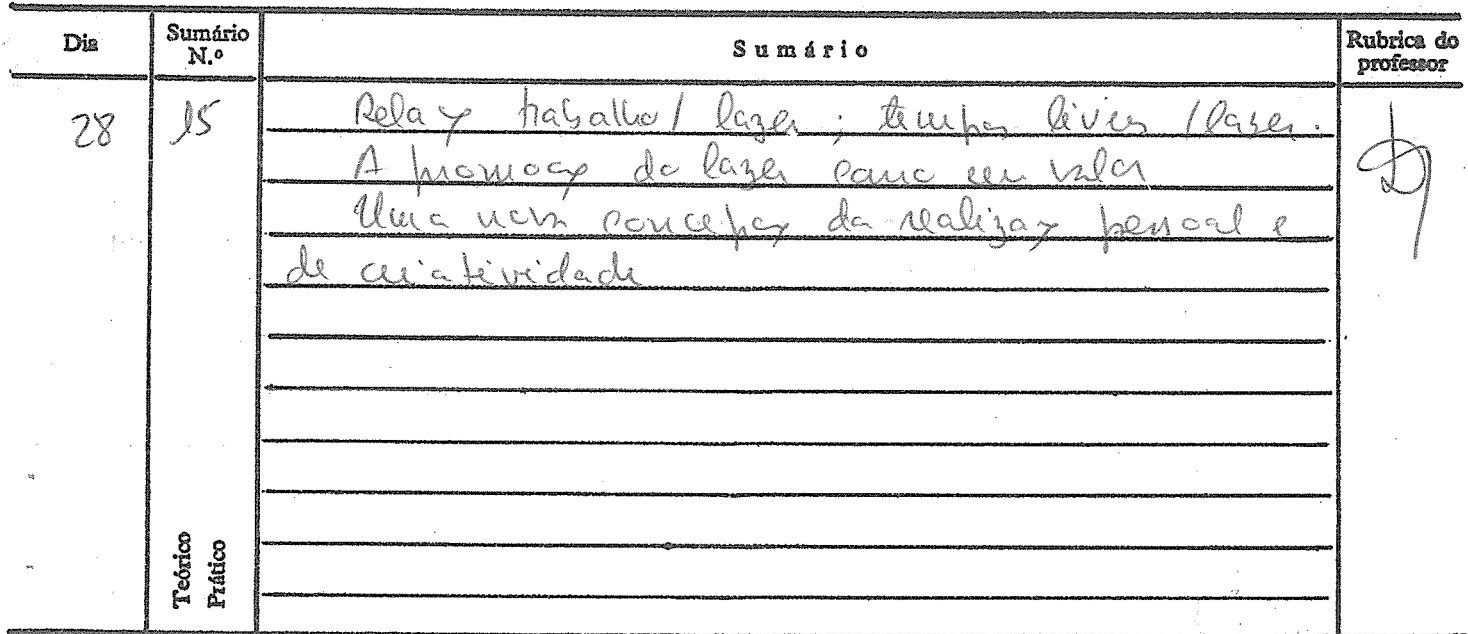 Dia
Sumário N.º
Sumário
Rubrica do professor
28
15
Relaç trabalho / lazer ; tempos livres / lazer.
A promoção do lazer como um valor
Uma nova concepção da realizaç pessoal e
de criatividade
Teórico
Prático